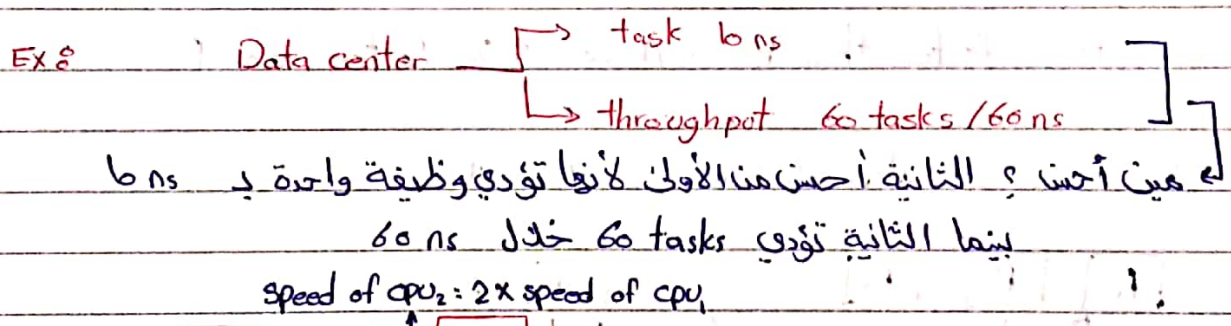 Ex: Data center → task 10 ns
→ throughput 60 tasks /60 ns
مين أحسن ؟ الثانية أحسن من الأولى لأنها تؤدي وظيفة واحدة بـ 10 ns
بينما الثانية تؤدي 60 tasks خلال 60 ns
speed of cpu₂ = 2 x speed of cpu₁